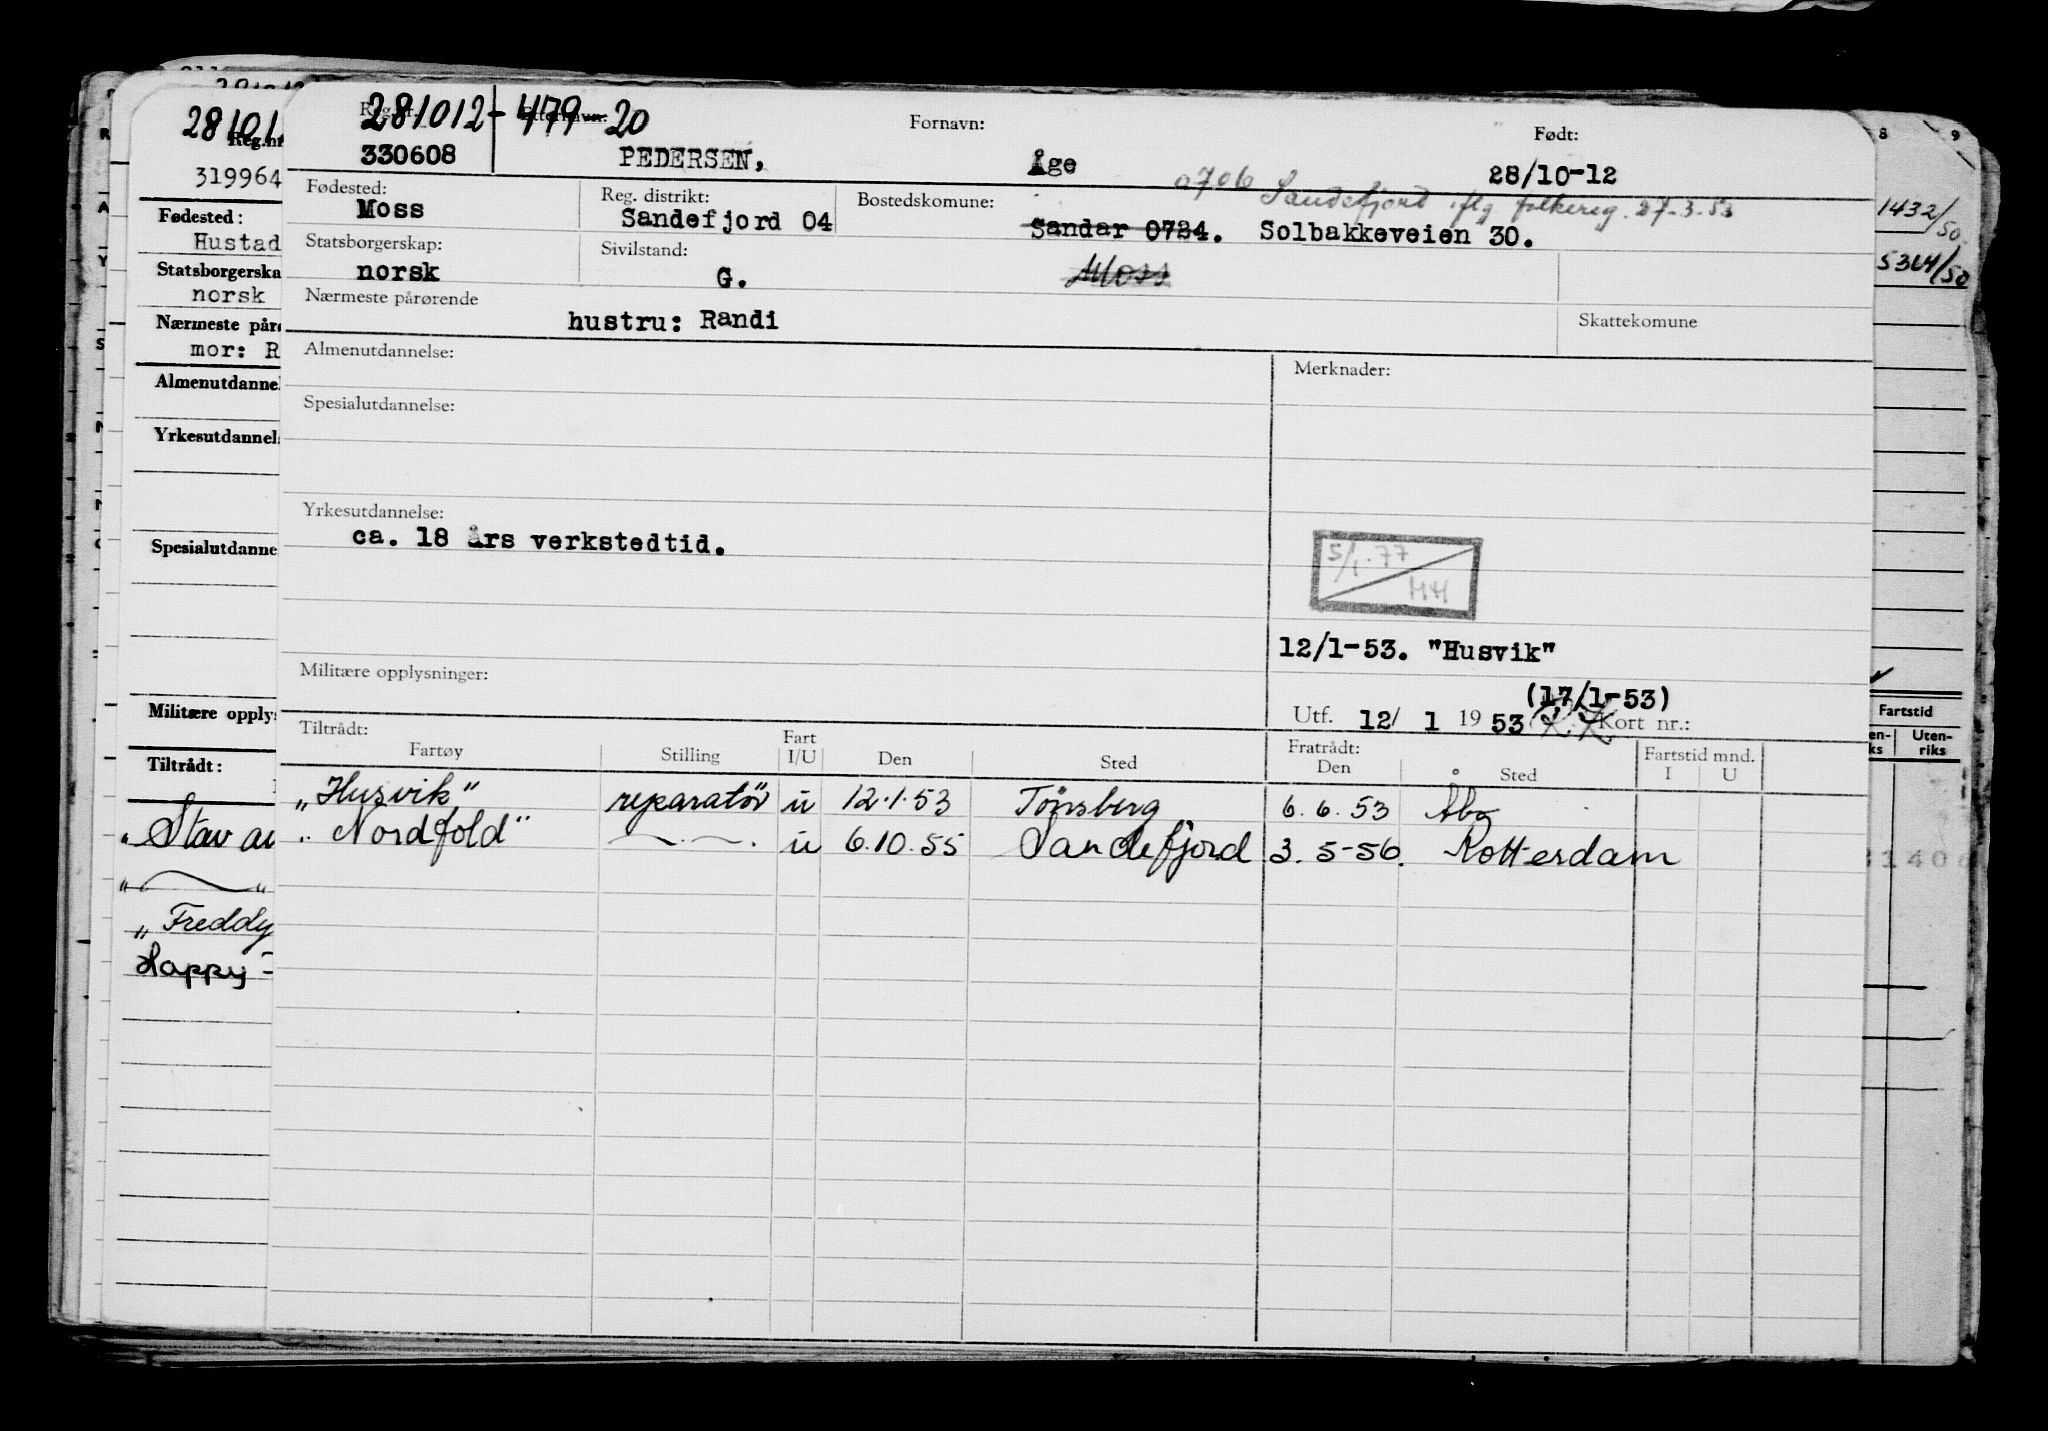 281012-479-20
Reg.nr. Etternavn: Fornavn: Født:
330608 PEDERSEN, Åge 28/10-12
0706 Sandefjord iflg folkereg. 27-3-53
Fødested: Reg. distrikt: Bostedskomune:
Moss Sandefjord 04 Sandar 0724. Solbakkeveien 30.
Statsborgerskap: Sivilstand:
norsk G. Moss
Nærmeste pårørende Skattekomune
hustru: Randi
Almenutdannelse: Merknader:
Spesialutdannelse:
Yrkesutdannelse:
ca. 18 års verkstedtid.
5/1.77
HH
12/1-53. "Husvik"
Militære opplysninger:
(17/1-53)
Utf. 12/ 1 19 53 Kort nr.:
Tiltrådt: Fratrådt:
Fartøy Stilling Fart I/U Den Sted Den Sted Fartstid mnd. I U
„Husvik" reparatör u 12.1.53 Tönsberg 6.6.53 Åbo
„Nordfold" —.—. u 6.10.55 Sandefjord 3.5-56. Rotterdam
28101
Reg.nr
319964
Fødested:
Hustad
Statsborgerska
norsk
Nærmeste påre
mor: R
Almenutdannel
Yrkesutdannel
Spesialutdanne
Militære opplys
Tiltrådt:
„Stav
„ — "
„Freddy
Happy
8 9
1432/50
5364/50
Fartstid
en-ks Uten-riks
140